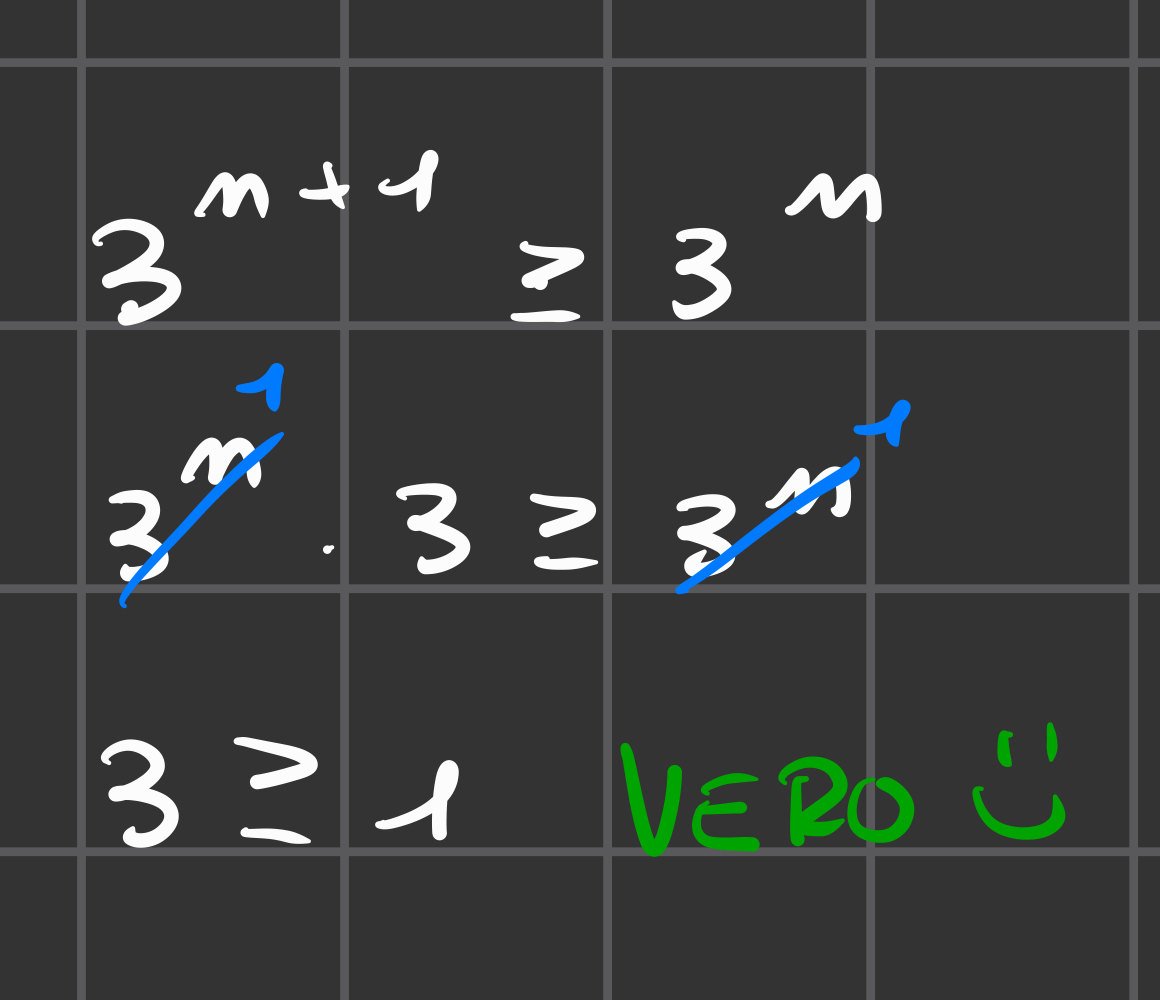 3^{n+1} ≥ 3^n
3^n 1 · 3 ≥ 3^n 1
3 ≥ 1 VERO